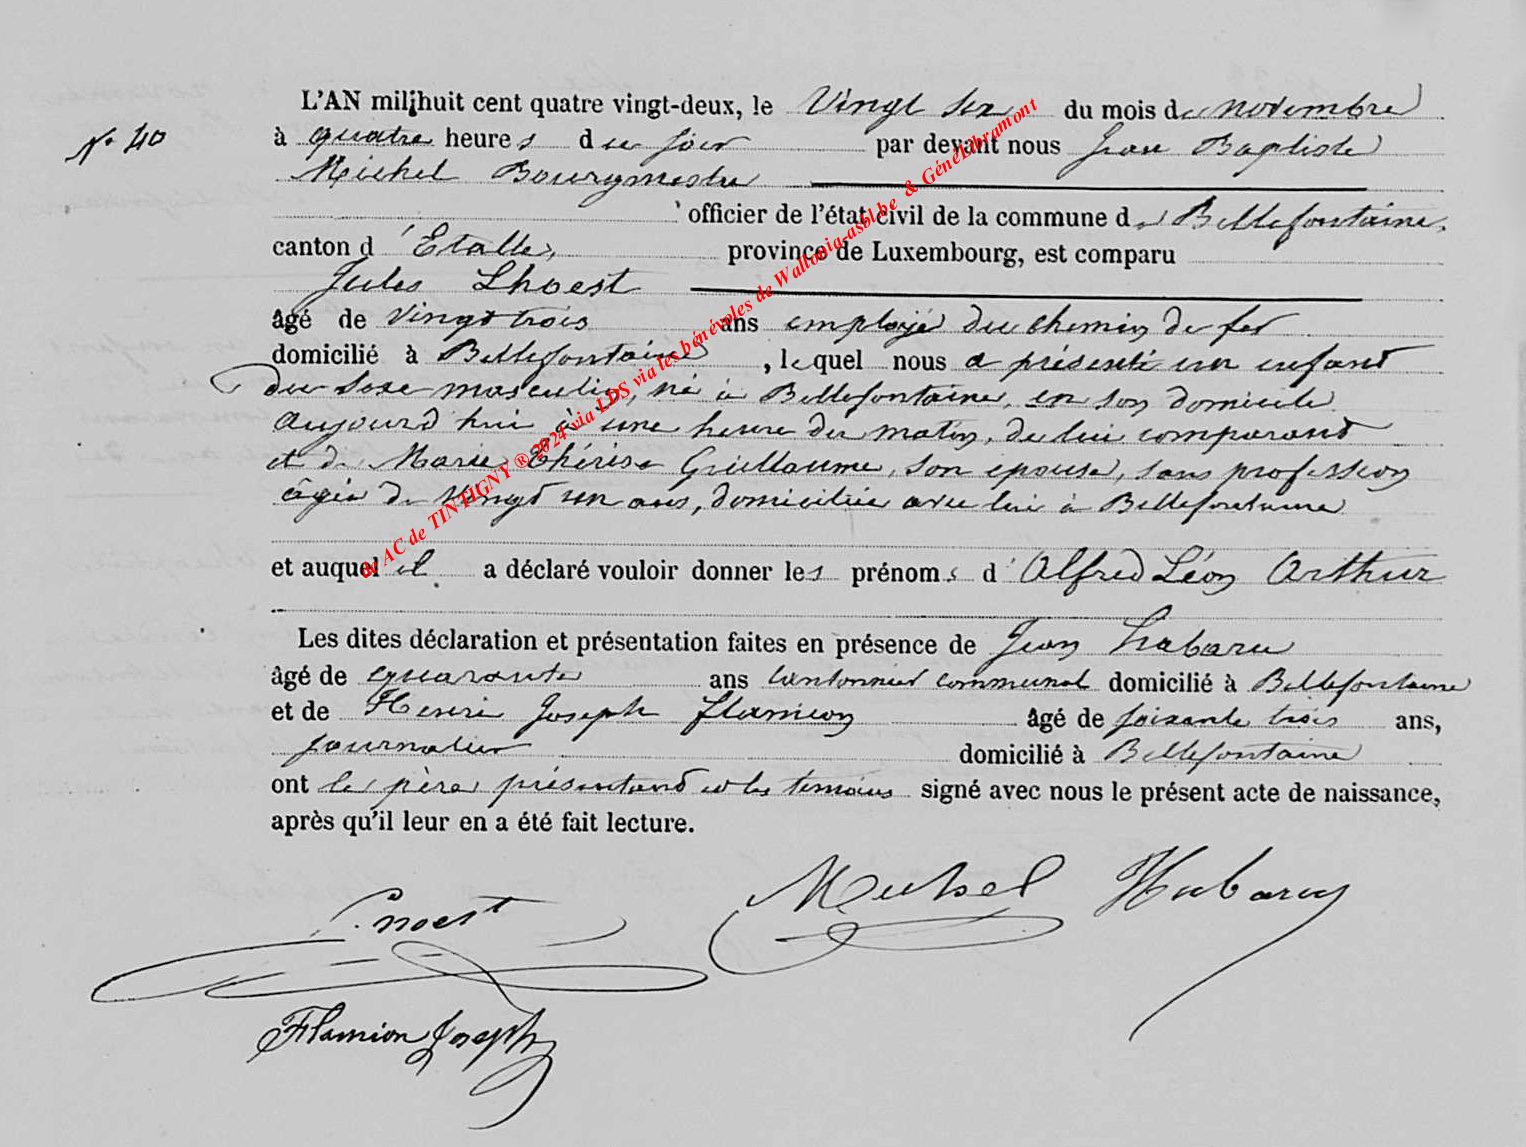 L'AN mil huit cent quatre vingt-deux, le Vingt six du mois de novembre
N° 40
à quatre heures du soir par devant nous Jean Baptiste
Michel Bourgmestre
officier de l'état civil de la commune de Bellefontaine,
canton d'Etalle, province de Luxembourg, est comparu
Jules Lhoest
âgé de vingt trois ans employé du chemin de fer
domicilié à Bellefontaine, lequel nous a présenté un enfant
du sexe masculin, né à Bellefontaine, en son domicile
aujourd'hui à une heure du matin, de lui comparant
et de Marie Thérèse Guillaume, son épouse, sans profession
âgée de vingt un ans, domiciliée avec lui à Bellefontaine
et auquel il a déclaré vouloir donner les prénoms d'Alfred Léon Arthur
Les dites déclaration et présentation faites en présence de Jean Habaru
âgé de quarante ans cantonnier communal domicilié à Bellefontaine
et de Henri Joseph Flamion âgé de soixante trois ans,
journalier domicilié à Bellefontaine
ont le père présentant et les témoins signé avec nous le présent acte de naissance,
après qu'il leur en a été fait lecture.
Michel Habaru
Lhoest
Flamion Joseph
de AC de TINTIGNY ® 2024 via LDS via les bénévoles de Wallonia-asbl.be & GénéLibramont